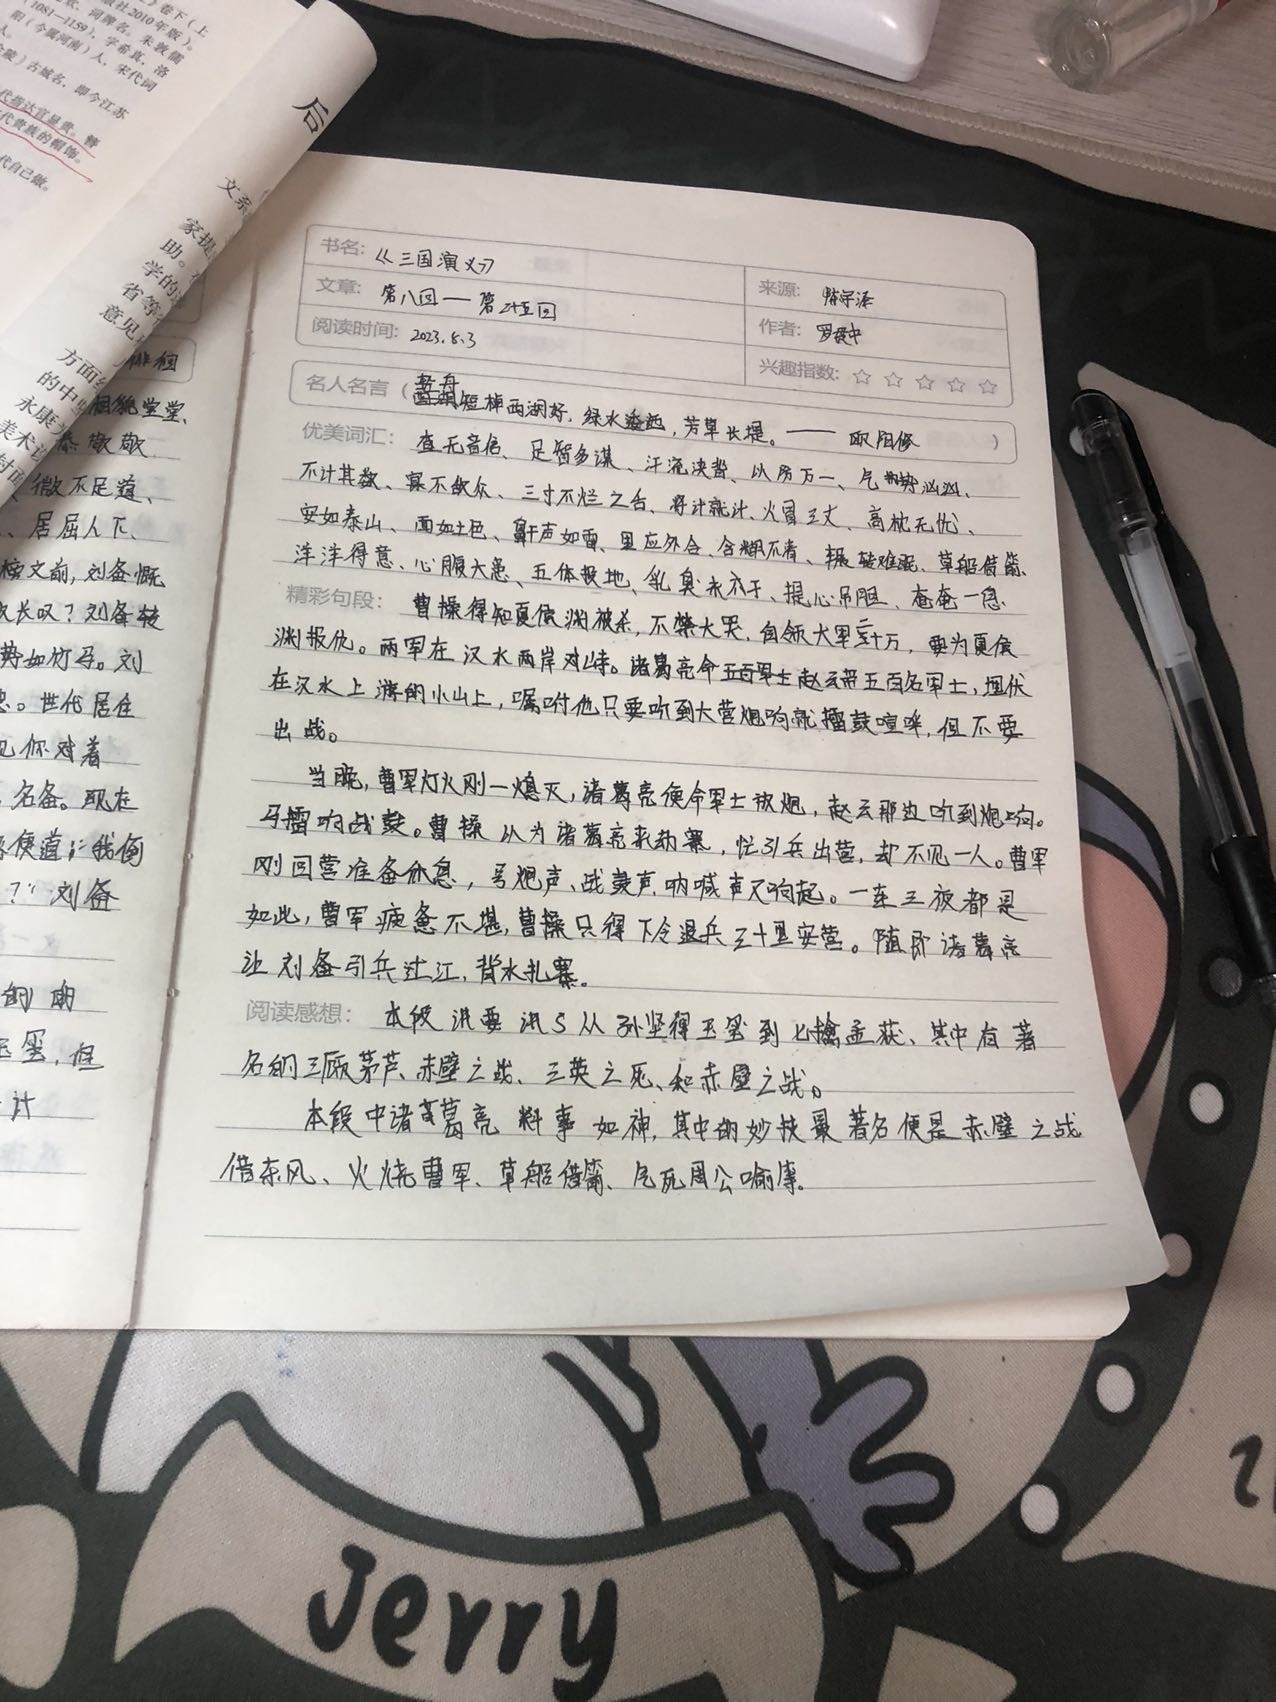 后
书名：《三国演义》
来源：
文章：第八回—第二十五回
作者：罗贯中
阅读时间：2023.8.3
兴趣指数：☆☆☆☆☆
名人名言（轻舟短棹西湖好，绿水逶迤，芳草长堤。——欧阳修）
优美词汇：杳无音信、足智多谋、汗流浃背、以防万一、气势汹汹、
不计其数、寡不敌众、三寸不烂之舌、将计就计、火冒三丈、高枕无忧、
安如泰山、面如土色、鼾声如雷、里应外合、含糊不清、辗转难眠、草船借箭、
洋洋得意、心腹大患、五体投地、乳臭未干、提心吊胆、奄奄一息
精彩句段：曹操得知夏侯渊被杀，不禁大哭，自领大军二十万，要为夏侯
渊报仇。两军在汉水两岸对峙。诸葛亮命五百军士赵云带五百名军士，埋伏
在汉水上游的小山上，嘱咐他只要听到大营炮响就擂鼓喧哗，但不要
出战。
当晚，曹军灯火刚一熄灭，诸葛亮便命军士放炮，赵云那边听到炮响。
马擂响战鼓。曹操以为诸葛亮来劫寨，忙引兵出营，却不见一人。曹军
刚回营准备休息，号炮声、战鼓声、呐喊声又响起。一连三夜都是
如此，曹军疲惫不堪，曹操只得下令退兵三十里安营。随即诸葛亮
让刘备引兵过江，背水扎寨。
阅读感想：本段讲要讲了从孙坚得玉玺到七擒孟获、其中有著
名的三顾茅芦、赤壁之战、三英之死、和赤壁之战。
本段中诸葛亮料事如神，其中的妙技最著名便是赤壁之战
借东风、火烧曹军、草船借箭、气死周公瑜等。
相貌堂堂、
恭敬敬
微不足道、
居屈人下、
榜文前，刘备慨
长叹？刘备转
势如竹马。刘
世代居住
见你对着
名备。现在
便道：“我倒
？”刘备
的）的
玉玺，但
计
Jerry